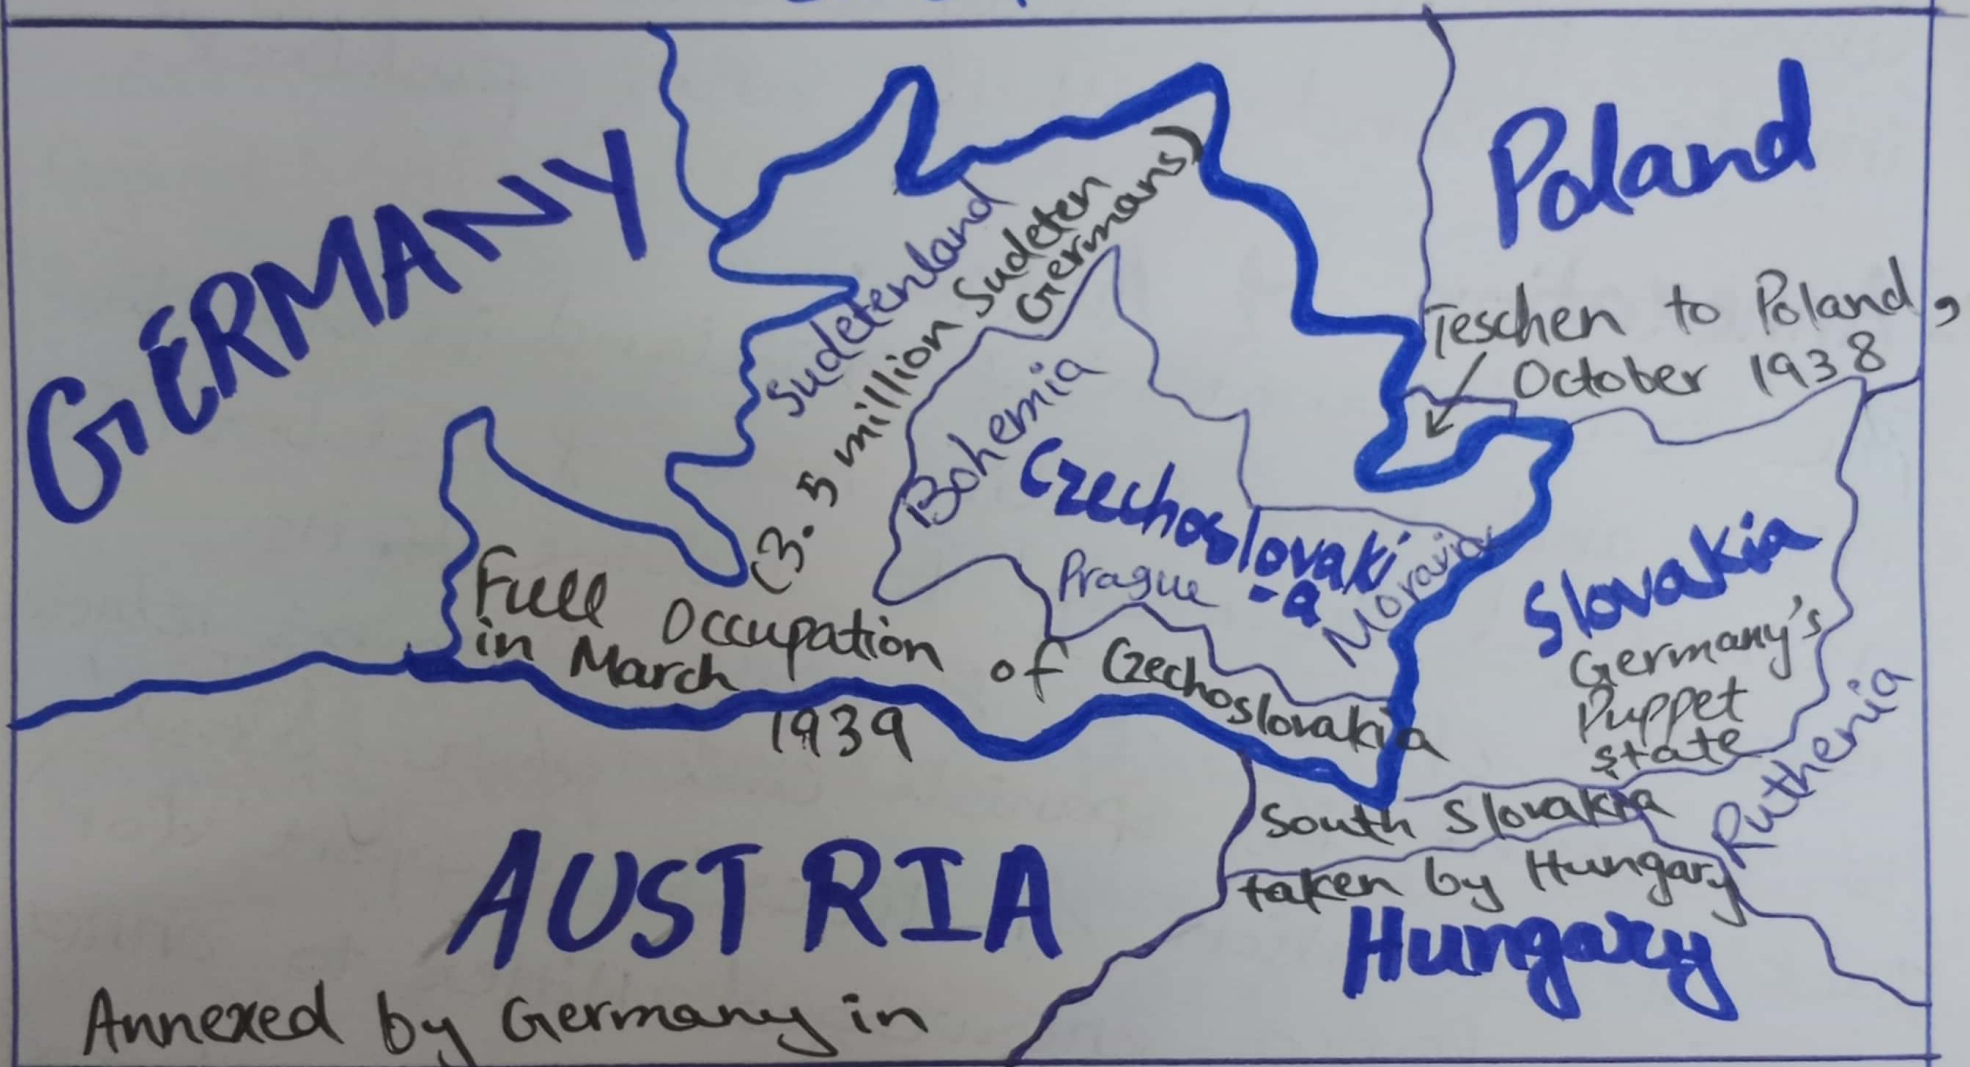 GERMANY
Poland
Sudetenland
(3.5 million Sudeten
Germans)
Teschen to Poland,
October 1938
Bohemia
Czechoslovaki
-a
Prague
Moravia
Slovakia
Germany's
Puppet
state
Ruthenia
Full Occupation of Czechoslovakia
in March
1939
South Slovakia
taken by Hungary
Hungary
AUSTRIA
Annexed by Germany in